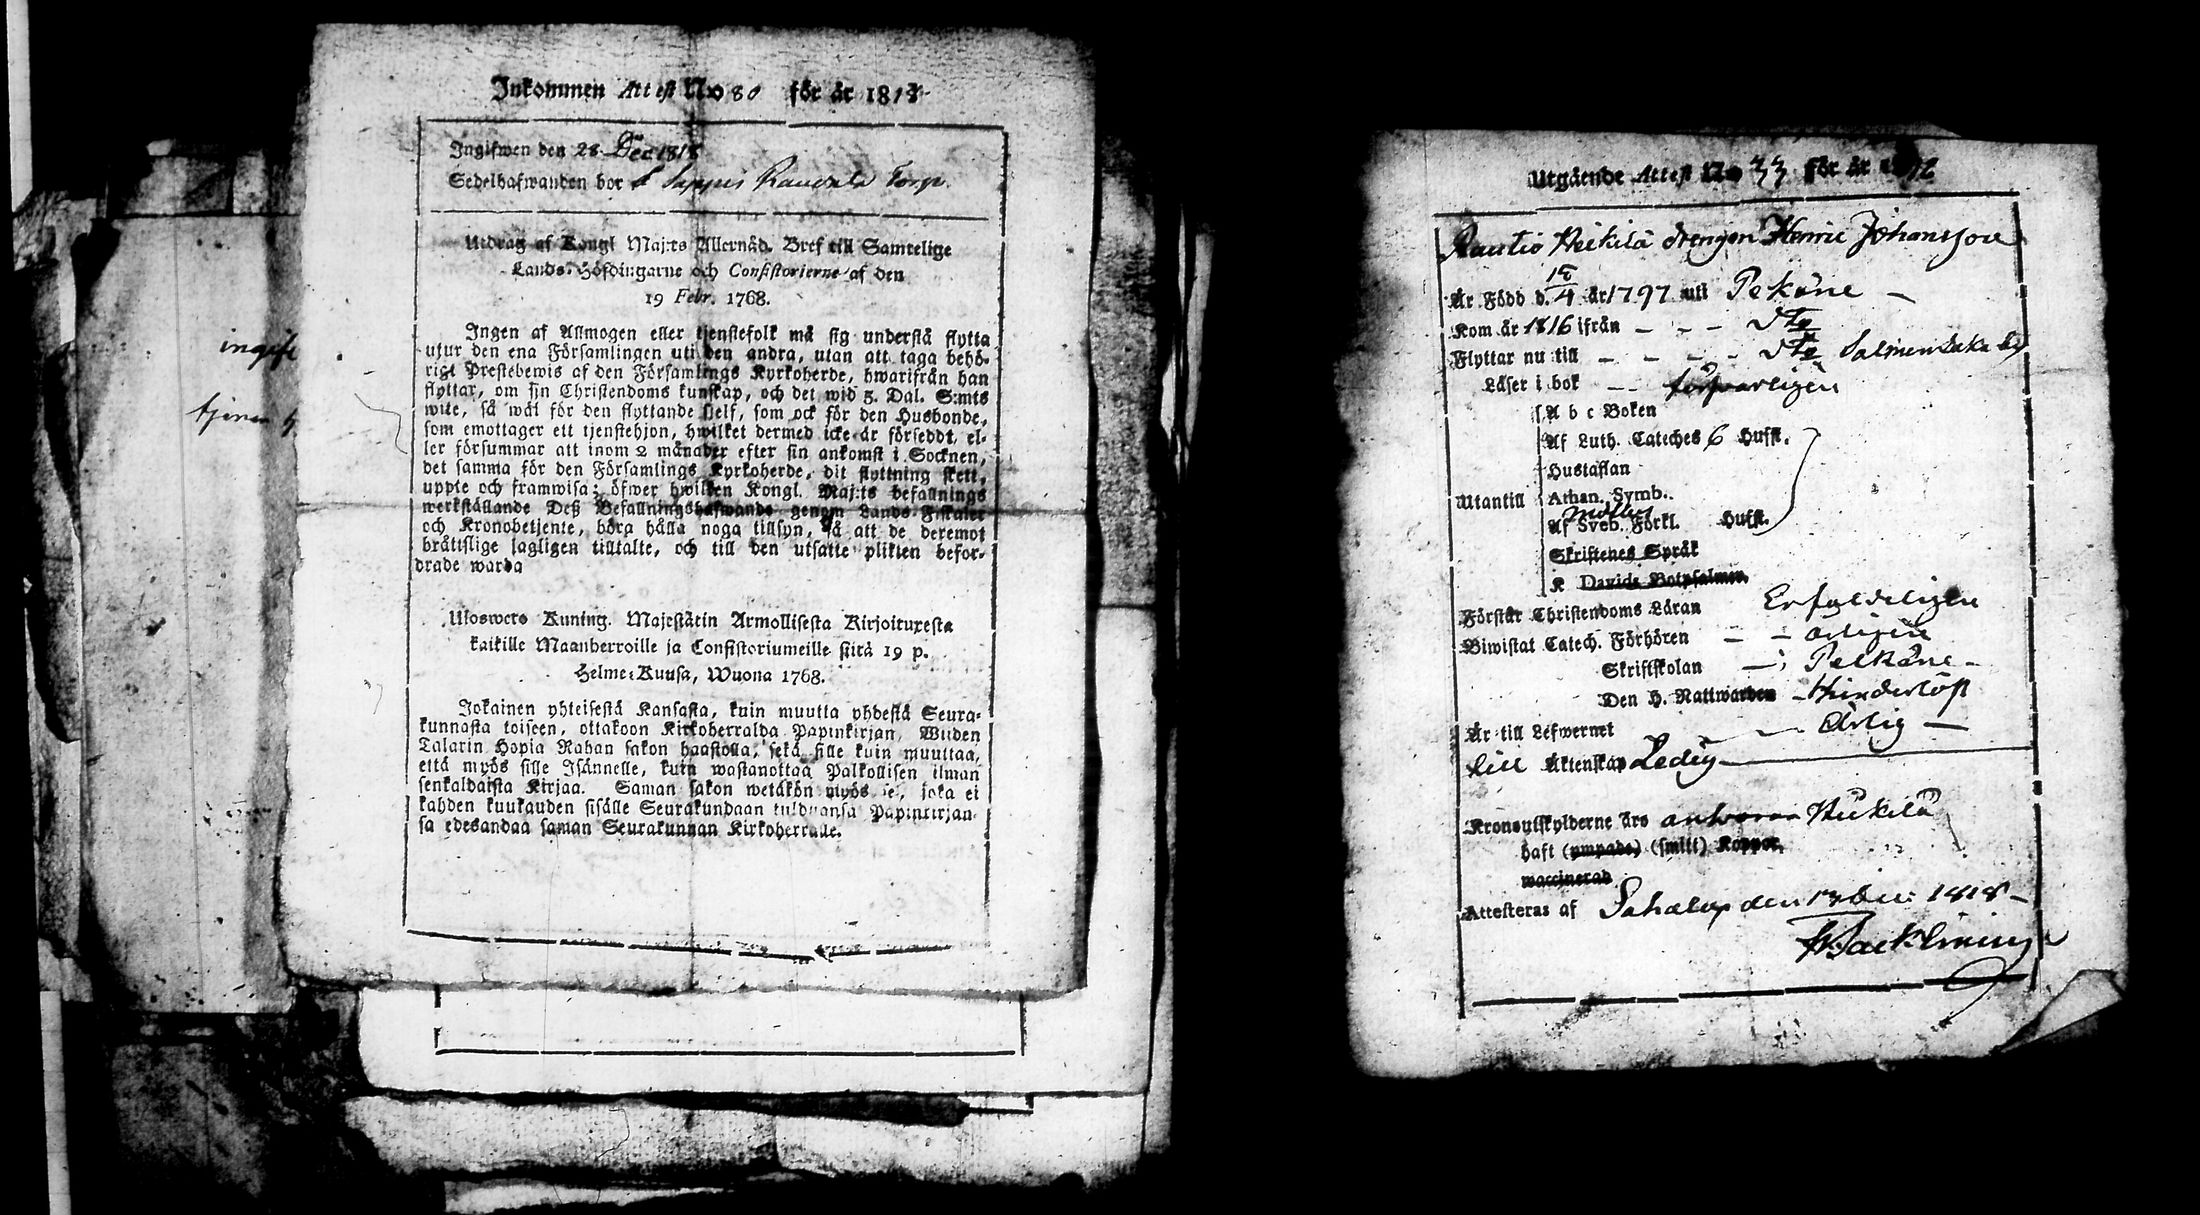 Inkommen Attest No 80 för år 1818
Ingifwen den 28 Dec 1818
Sedelhafwanden bor å Torp.
Utdrag af Kongl Maj:ts Allernåd. Bref till Samtelige
Lands-Höfdingarne och Consistorierne af den
19 Febr. 1768.
Ingen af Allmogen eller tjenstefolk må sig understå flytta
utur den ena Församlingen uti den andra, utan att taga behö-
rigt Prestebewis af den Församlings Kyrkoherde, hwarifrån han
flyttar, om sin Christendoms kunskap, och det wid 5. Dal. S:mts
wite, så wäl för den flyttande sjelf, som ock för den Husbonde,
som emottager ett tjenstehjon, hwilket dermed icke är försedt, el-
ler försummar att inom 2 månader efter sin ankomst i Socknen,
det samma för den Församlings Kyrkoherde, dit flyttning skett,
uppte och framwisa; öfwer hwilken Kongl. Maj:ts befallnings
werkställande Deß Befallningshafwande genom Lands-Fiskaler
och Kronobetjente, böra hålla noga tillsyn, så att de deremot
bråttslige lagligen tilltalte, och till den utsatte plikten befor-
drade warda
Uloswers Kuning. Majestätin Armollisesta Kirjoituxesta
kaikille Maanherroille ja Consistoriumeille siitä 19 p.
Helme-Kuusa, Wuona 1768.
Jokainen yhteisestä Kansasta, kuin muutta yhdestä Seura-
kunnasta toiseen, ottakoon Kirkoherralda Papinkirjan, Wiiden
Talarin Hopia Rahan sakon haastolla, sekä sille kuin muuttaa,
että myös sille Isännelle, kuin wastanottaa Palkollisen ilman
senkaldaista Kirjaa. Saman sakon wetäkön myös se, joka ei
kahden kuukauden sisälle Seurakundaan tulduansa Papinkirjan-
sa edesandaa saman Seurakunnan Kirkoherralle.
ingifv
tjenar
Utgående Attest No 33 för år
Rautio Heikilä drengen Henric Johansson
Är Född d. 15/4 år 1797 uti Pekäne —
Kom år 1816 ifrån — — — dto
Flyttar nu till — — — — dto
Läser i bok — — förswarligen
A b c Boken
Af Luth. Cateches 6 Hufst.
Hustaflan
Utantill
Athan. Symb.
Af Sveb. Förkl. Hufst.
Skriftenes Språk
K Davids Botpsalmer.
Förstår Christendoms Läran Enfaldeligen
Biwistat Catech. Förhören — — årligen
Skriftskolan — Pelkäne —
Den H. Nattwarden — Hinderlöst
Är till Lefwernet — — Ärlig —
till Äktenskap Ledig —
Kronoutskylderne äro Heikilä
haft (ympade) (smitt) Koppor,
waccinerad
Attesteras af Sahalax den 13 Dec: 1818 —